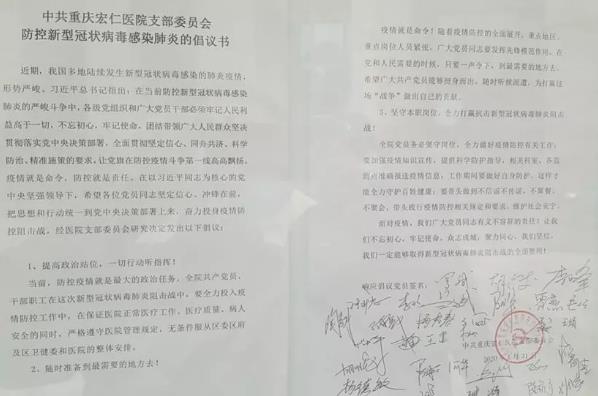 中共重庆宏仁医院支部委员会
防控新型冠状病毒感染肺炎的倡议书
近期，我国多地陆续发生新型冠状病毒感染的肺炎疫情，
形势严峻。习近平总书记指出：在当前防控新型冠状病毒感染
肺炎的严峻斗争中，各级党组织和广大党员干部必须牢记人民利
益高于一切，不忘初心，牢记使命，团结带领广大人民群众坚决
贯彻落实党中央决策部署，全面贯彻坚定信心、同舟共济、科学
防治、精准施策的要求，让党旗在防控疫情斗争第一线高高飘扬。
疫情就是命令，防控就是责任。在以习近平同志为核心的党
中央坚强领导下，希望各位党员同志坚定信心、冲锋在前，
把思想和行动统一到党中央决策部署上来，奋力投身疫情防
控阻击战。经医院支部委员会研究决定发出以下倡议：
1、提高政治站位，一切行动听指挥！
当前，防控疫情就是最大的政治任务。全院共产党员、
干部职工在这次新型冠状病毒肺炎阻击战中，要全力投入疫
情防控工作中，在保证医院正常医疗工作、医疗质量、病人
安全的同时，严格遵守医院管理规定，无条件服从区委区府
及区卫健委和医院的整体安排。
2、随时准备到最需要的地方去！
疫情就是命令！随着疫情防控的全面展开，重点地区、
重点岗位人员紧张，广大党员同志要发挥先锋模范作用，在
党和人民需要的时候，只要一声令下，到最需要的地方去。
希望广大共产党员能够挺身而出，随时听候派遣，为打赢这
场“战争”做出自己的贡献。
3、坚守本职岗位，全力打赢抗击新型冠状病毒肺炎阻击
战！
全院党员务必坚守岗位，全力做好疫情防控有关工作：
要加强疫情知识宣传，提供科学防护指导，相关科室、各监
测点准确报送疫情信息，工作期间要做好自身防护，这样才
能全力守护百姓健康；要带头做到不信谣不传谣，不聚餐、
不聚会，带头践行疫情防控相关规定和要求，维护社会安宁。
面对疫情，我们广大党员同志有义不容辞的责任！让我
们不忘初心、牢记使命，众志成城，聚力同心，我们坚信，
我们一定能够取得新型冠状病毒肺炎阻击战的全面胜利！
响应倡议党员签名：
中共重庆宏仁医院支部委员会
2020